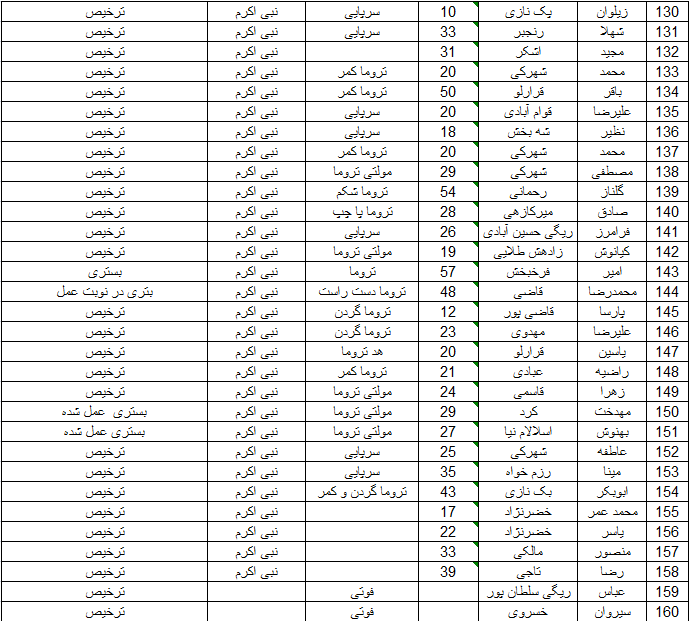 130 زیلوان پک نازی 10 سرپایی نبی اکرم ترخیص
131 شهلا رنجبر 33 سرپایی نبی اکرم ترخیص
132 مجید اشکر 31 نبی اکرم ترخیص
133 محمد شهرکی 20 تروما کمر نبی اکرم ترخیص
134 باقر قرارلو 50 تروما کمر نبی اکرم ترخیص
135 علیرضا قوام آبادی 20 سرپایی نبی اکرم ترخیص
136 نظیر شه بخش 18 سرپایی نبی اکرم ترخیص
137 محمد شهرکی 20 تروما کمر نبی اکرم ترخیص
138 مصطفی شهرکی 29 مولتی تروما نبی اکرم ترخیص
139 گلناز رحمانی 54 تروما شکم نبی اکرم ترخیص
140 صادق میرکازهی 28 تروما پا چپ نبی اکرم ترخیص
141 فرامرز ریگی حسین آبادی 26 سرپایی نبی اکرم ترخیص
142 کیانوش زادهش طلایی 19 مولتی تروما نبی اکرم ترخیص
143 امیر فرخبخش 57 تروما نبی اکرم بستری
144 محمدرضا قاضی 48 تروما دست راست نبی اکرم بتری در نوبت عمل
145 پارسا قاضی پور 12 تروما گردن نبی اکرم ترخیص
146 علیرضا مهدوی 23 تروما گردن نبی اکرم ترخیص
147 یاسین قرارلو 20 هد تروما نبی اکرم ترخیص
148 راضیه عبادی 21 تروما کمر نبی اکرم ترخیص
149 زهرا قاسمی 24 مولتی تروما نبی اکرم ترخیص
150 مهدخت کرد 29 مولتی تروما نبی اکرم بستری عمل شده
151 بهنوش اسلالام نیا 27 مولتی تروما نبی اکرم بستری عمل شده
152 عاطفه شهرکی 25 سرپایی نبی اکرم ترخیص
153 مینا رزم خواه 35 سرپایی نبی اکرم ترخیص
154 ابوبکر بک نازی 43 تروما گردن و کمر نبی اکرم ترخیص
155 محمد عمر خضرنژاد 17 نبی اکرم ترخیص
156 یاسر خضرنژاد 22 نبی اکرم ترخیص
157 منصور مالکی 33 نبی اکرم ترخیص
158 رضا تاجی 39 نبی اکرم ترخیص
159 عباس ریگی سلطان پور فوتی ترخیص
160 سیروان خسروی فوتی ترخیص